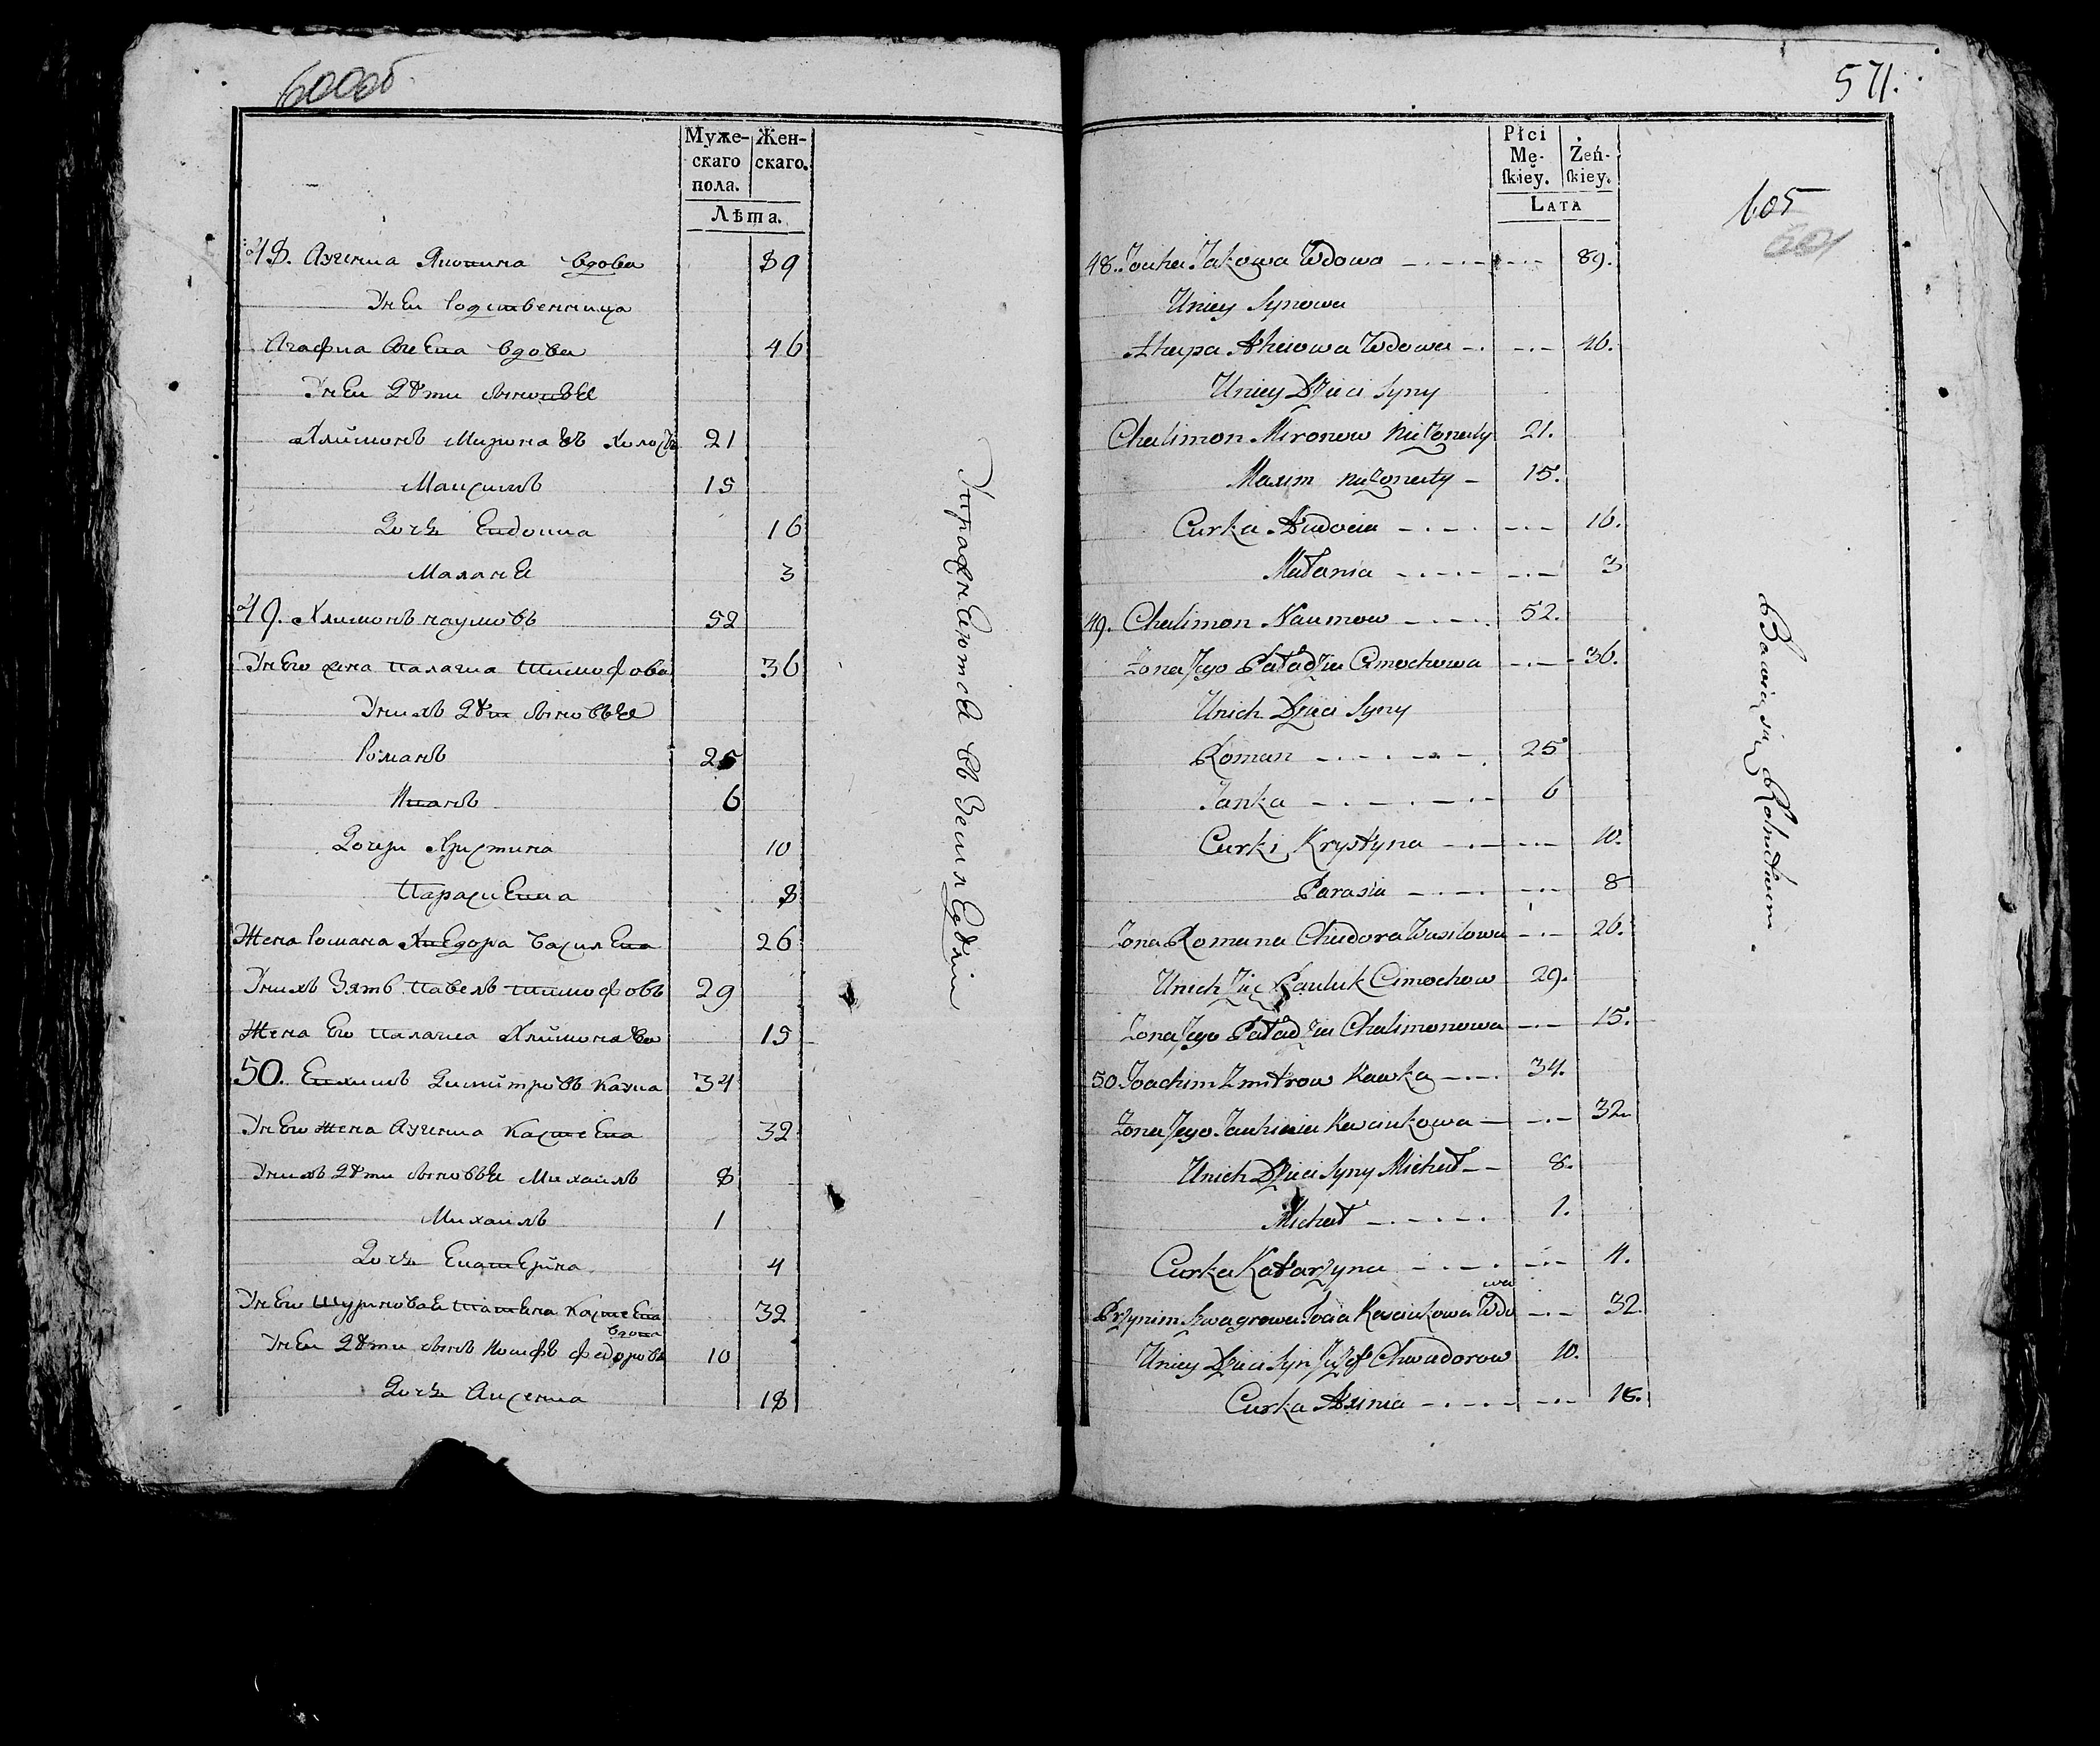 600об.
Муже-
скаго
пола.
Жен-
скаго.
Лѣта.
48. Авгиниа Яковина вдова 89
У ней Родственница
Агафиа вдова 46
У ней Дѣти сыновья
Халимонъ Миронавъ Холостъ 21
Максимъ 15
Дочь Евдокиа 16
Маланя 3
49. Халимонъ наумовъ 52
У него жена Палагиа Тимофова 36
У нихъ Дѣти сыновья
Романъ 25
Иванъ 6
Дочери Христина 10
Параскевиа 8
Жена Романа Хведора Василева 26
У нихъ Зять Павелъ Тимофовъ 29
Жена Его Палагиа Халимонава 15
50. Ехимъ Димитровъ Кавка 34
У него жена Авгиниа 32
У нихъ Дѣти сыновья Михаилъ 8
Михаилъ 1
Дочь Екатерина 4
У него 32
вдова
У ней Дѣти сынъ Иосифъ Федоровъ 10
Дочь Аксениа 18
Упражняются въ Земледѣліи
571.
Płci
Mę-
ſkiey.
Żeń-
ſkiey.
LATA
605
601
48. Jakowa Wdowa 89.
Uniey Synowa
Ahapa Wdowa 46.
Uniey Dzieci Syny
Chalimon Mironow Nieżonaty 21.
Maxim nieżonaty 15.
Curka Awdocia 16.
Małania 3
49. Chalimon Naumow 52.
Żona Jego Paładzia Cimochowa 36.
Unich Dzieci Syny
Roman 25
Janka 6
Curki Krystyna 10.
Parasia 8
Żona Romana Chwdora Wasilowa 26.
Unich Zięć Pauluk Cimochow 29.
Żona Jego Paładzia Chalimonowa 15.
50. Joachim Zmitrow Kawka 34.
Żona Jego Jauhinia Kasciukowa 32.
Unich Dzieci Syny Michał 8.
Michał 1.
Curka Katarzyna 4.
wa
Przynim Szwagrowa Kasciukowa Wdo 32.
Uniey Dzieci Syn Jozef Chwadorow 10.
Curka Axinia 18.
Bawią się Rolnictwem.